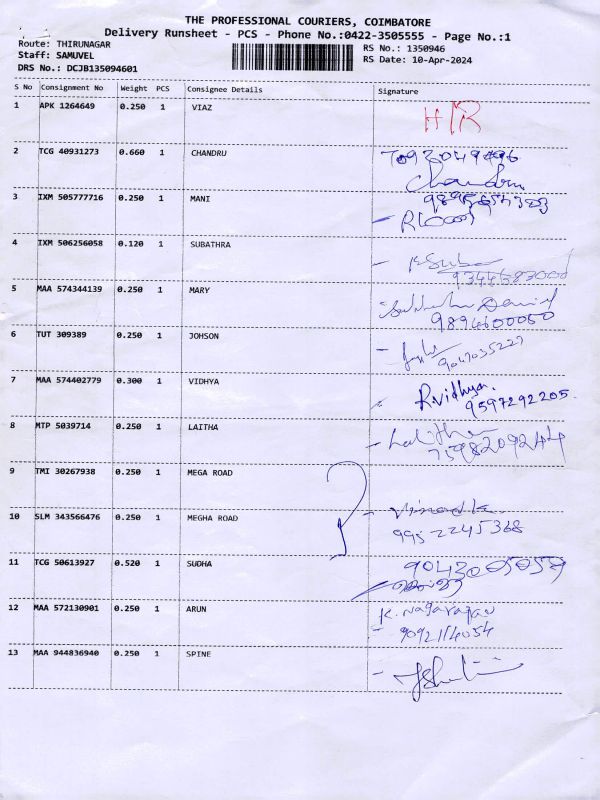 THE PROFESSIONAL COURIERS, COIMBATORE
Delivery Runsheet - PCS - Phone No.:0422-3505555 - Page No.:1
Route: THIRUNAGAR
RS No.: 1350946
Staff: SAMUVEL
RS Date: 10-Apr-2024
DRS No.: DCJB135094601
S No Consignment No Weight PCS Consignee Details Signature
1 APK 1264649 0.250 1 VIAZ
2 TCG 40931273 0.660 1 CHANDRU
Chandru
3 IXM 505777716 0.250 1 MANI
4 IXM 506256058 0.120 1 SUBATHRA
5 MAA 574344139 0.250 1 MARY
9894600050
6 TUT 309389 0.250 1 JOHSON
9047035227
7 MAA 574402779 0.300 1 VIDHYA R.vidhya.
9597292205.
8 MTP 5039714 0.250 1 LAITHA Lalitha
7598209244
9 TMI 30267938 0.250 1 MEGA ROAD
10 SLM 343566476 0.250 1 MEGHA ROAD
9952245368
11 TCG 50613927 0.520 1 SUDHA
12 MAA 572130901 0.250 1 ARUN K. Nagarajan
9092114054
13 MAA 944836940 0.250 1 SPINE